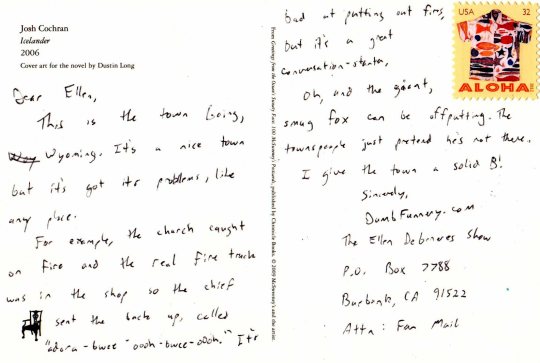 Josh Cochran
Icelander
2006
Cover art for the novel by Dustin Long
Dear Ellen,
This is the town Boing,
Wyoming. It's a nice town
but it's got its problems, like
any place.
For example, the church caught
on fire and the real fire truck
was in the shop so the chief
sent the back up, called
"adora-bwee-oooh-bwee-oooh." It's
From Greetings from the Ocean's Sweaty Face: 100 McSweeney's Postcards, published by Chronicle Books. © 2009 McSweeney's and the artist.
bad at putting out fires,
but it's a great
conversation-starter.
Oh, and the giant,
smug fox can be offputting. The
townspeople just pretend he's not there.
I give the town a solid B!
Sincerely,
DumbFunnery.com
The Ellen DeGeneres Show
P.O. Box 7788
Burbank, CA 91522
Attn: Fan Mail
USA 32
ALOHA